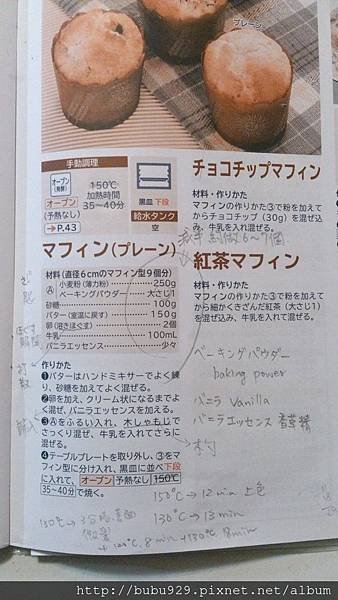 プレーン
手動調理
オーブン
(発酵)
オーブン
(予熱なし)
→P.43
150℃
加熱時間
35〜40分
黒皿 下段
給水タンク
空
チョコチップマフィン
材料・作りかた
マフィンの作りかた③で粉を加えて
からチョコチップ(30g)を混ぜ込
み、牛乳を入れ混ぜる。
6~7個
紅茶マフィン
材料・作りかた
マフィンの作りかた③で粉を加えて
から細かくきざんだ紅茶(大さじ1)
を混ぜ込み、牛乳を入れて混ぜる。
マフィン(プレーン)
材料(直径6cmのマフィン型9個分)
Ⓐ 小麦粉(薄力粉) 250g
ベーキングパウダー 大さじ1
砂糖 100g
バター(室温に戻す) 150g
卵(溶きほぐす) 2個
牛乳 100mL
バニラエッセンス 少々
作りかた
❶バターはハンドミキサーでよく練
り、砂糖を加えてよく混ぜる。
❷卵を加え、クリーム状になるまでよ
く混ぜ、バニラエッセンスを加える。
❸Ⓐをふるい入れ、木しゃもじで
さっくり混ぜ、牛乳を入れてさらに
混ぜる。
❹テーブルプレートを取り外し、③を
マフィン型に分け入れ、黒皿に並べ下段
に入れて、オーブン 予熱なし 150℃
35〜40分で焼く。
ベーキングパウダー
baking power
バニラ Vanilla
バニラエッセンス 香草精
木杓
150℃→12min 上色
130℃→13min
130℃→
8min+130℃ 8min
http://bubu929.pixnet.net/album